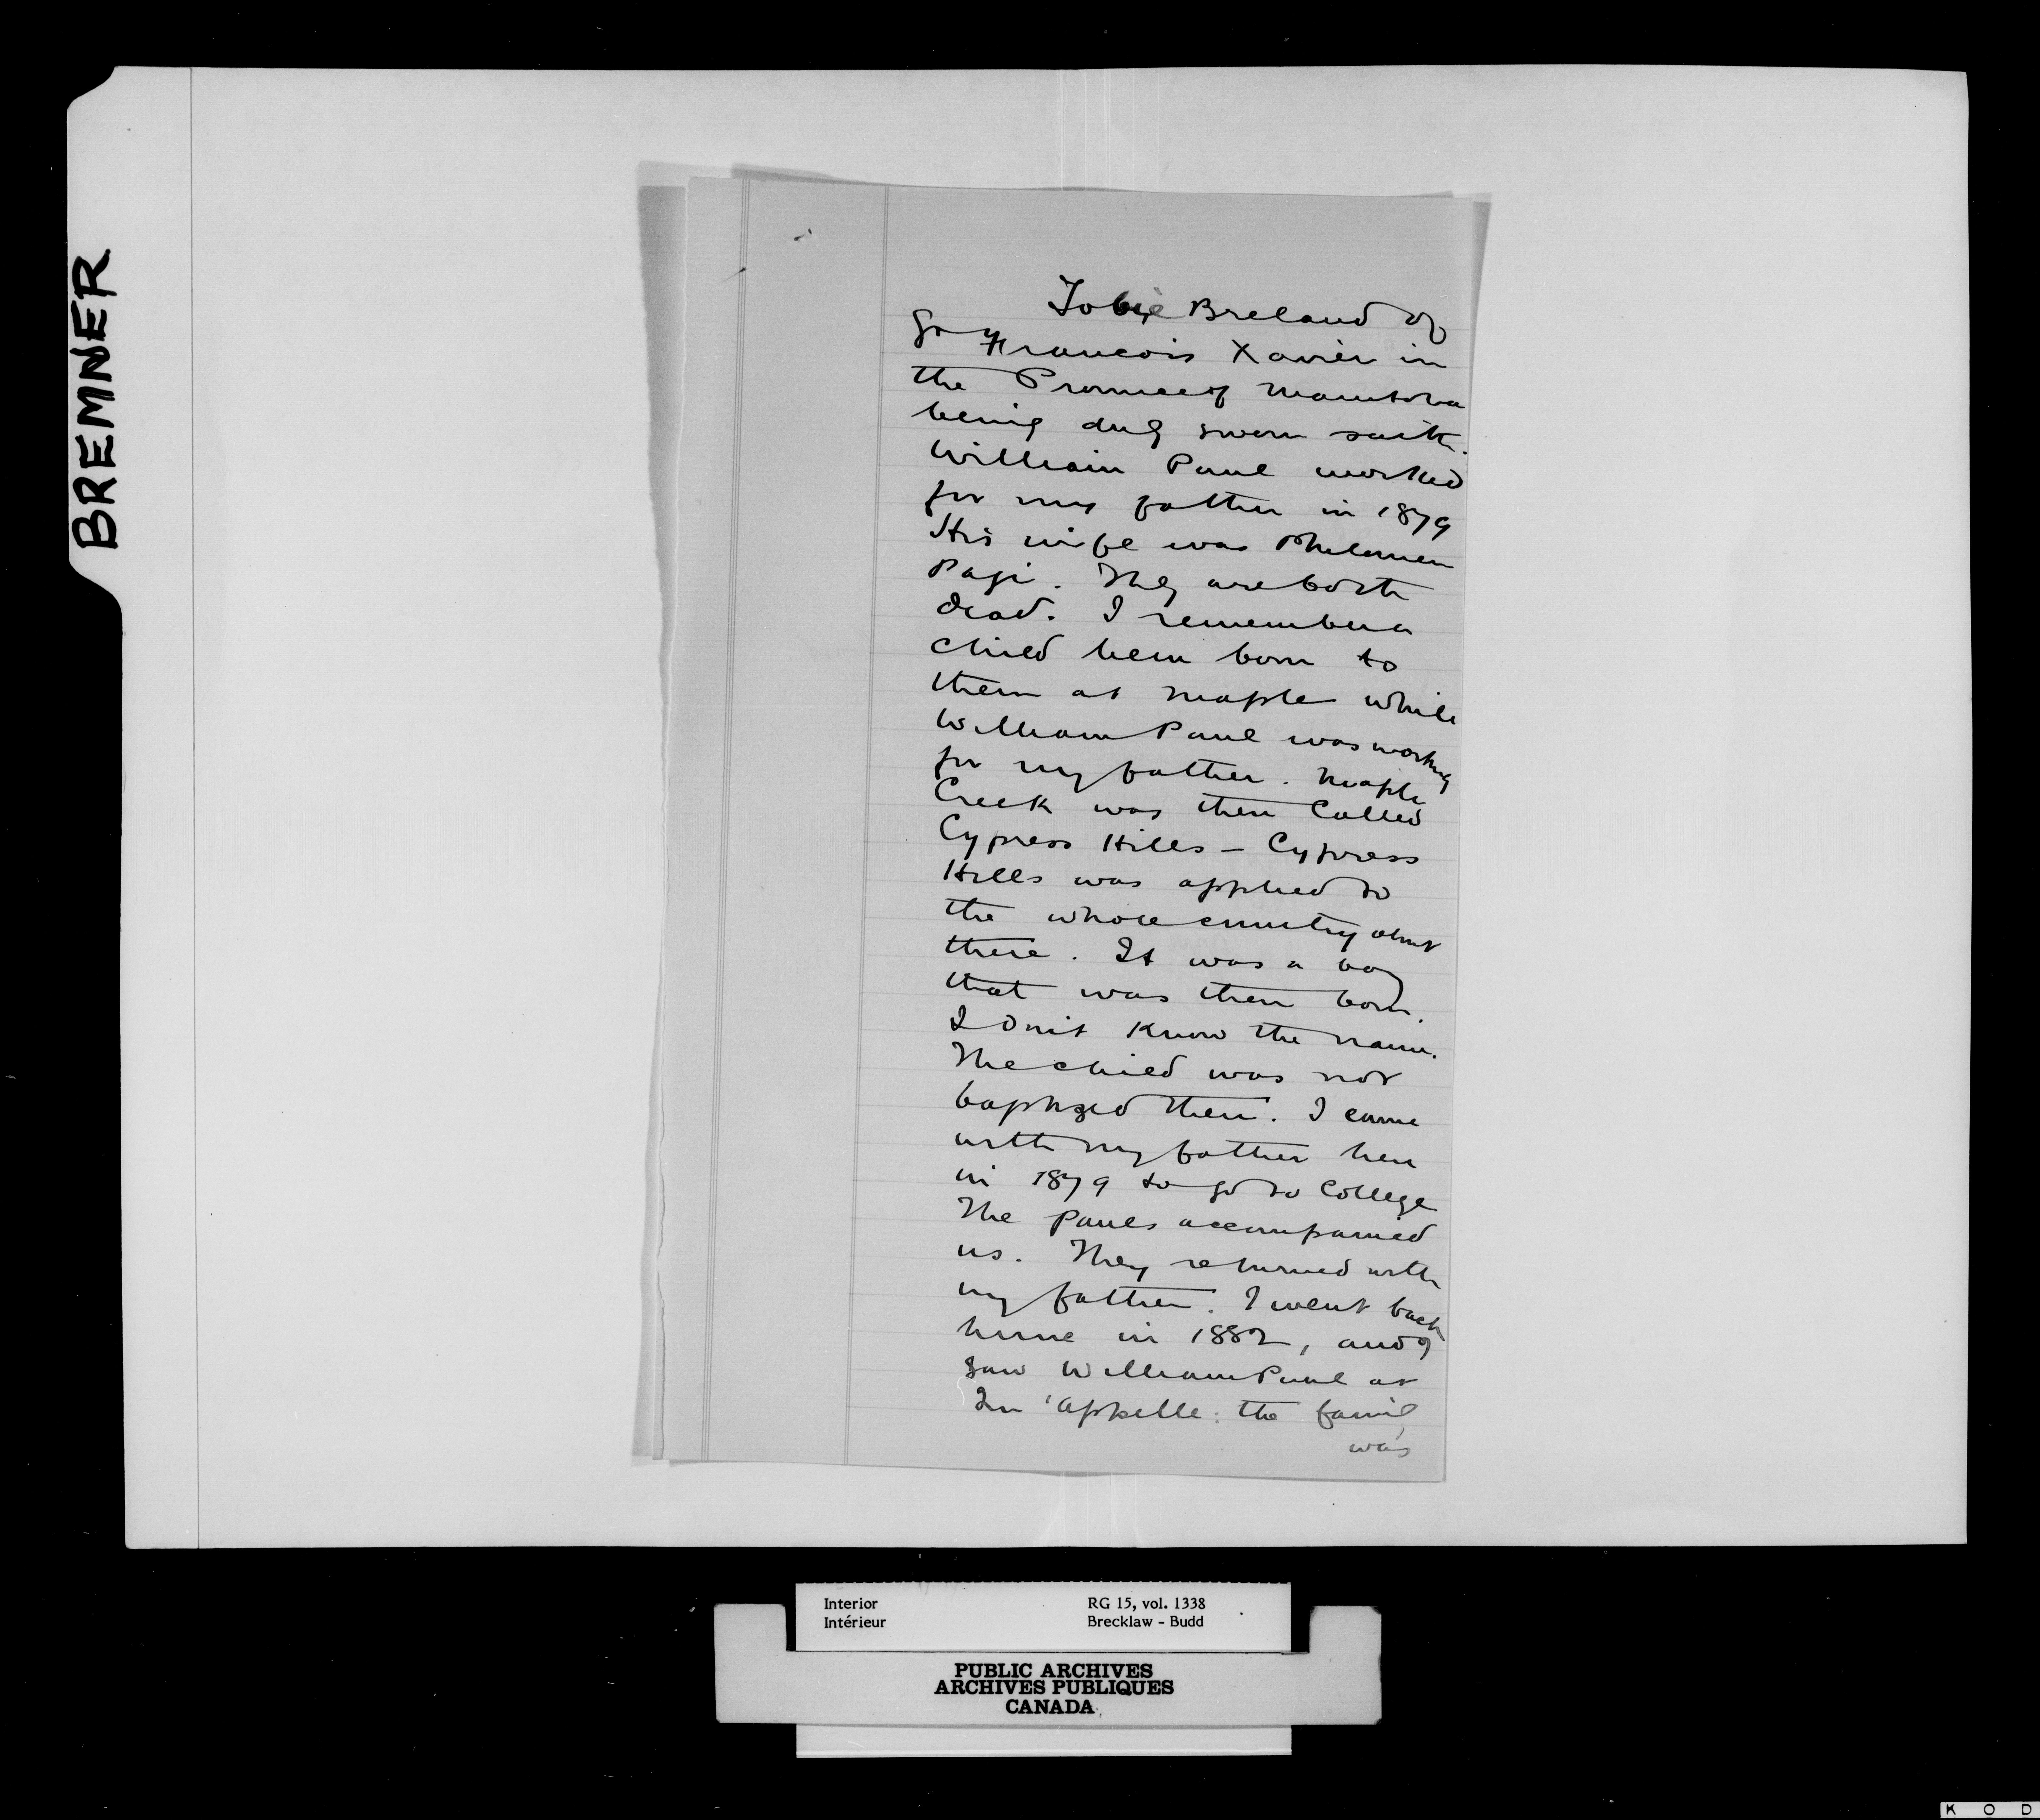 BREMNER
Tobie Breland of
St Francois Xavier in
the Province of Manitoba
being duly sworn saith.
William Paul worked
for my father in 1879
His wife was Philomen
Pagi. They are both
dead. I remember a
child bein born to
them at Maple while
William Paul was working
for my father. Maple
Creek was then called
Cypress Hills - Cypress
Hills was applied to
the whole country about
there. It was a boy
that was then born.
I don't know the name.
The child was not
baptized then. I came
with my father here
in 1879 to go to College
The Pauls accompanied
us. They returned with
my father. I went back
home in 1882, and I
saw William Paul at
Qu'appelle: the family
was
Interior RG 15, vol. 1338
Intérieur Brecklaw - Budd
PUBLIC ARCHIVES
ARCHIVES PUBLIQUES
CANADA
K O D